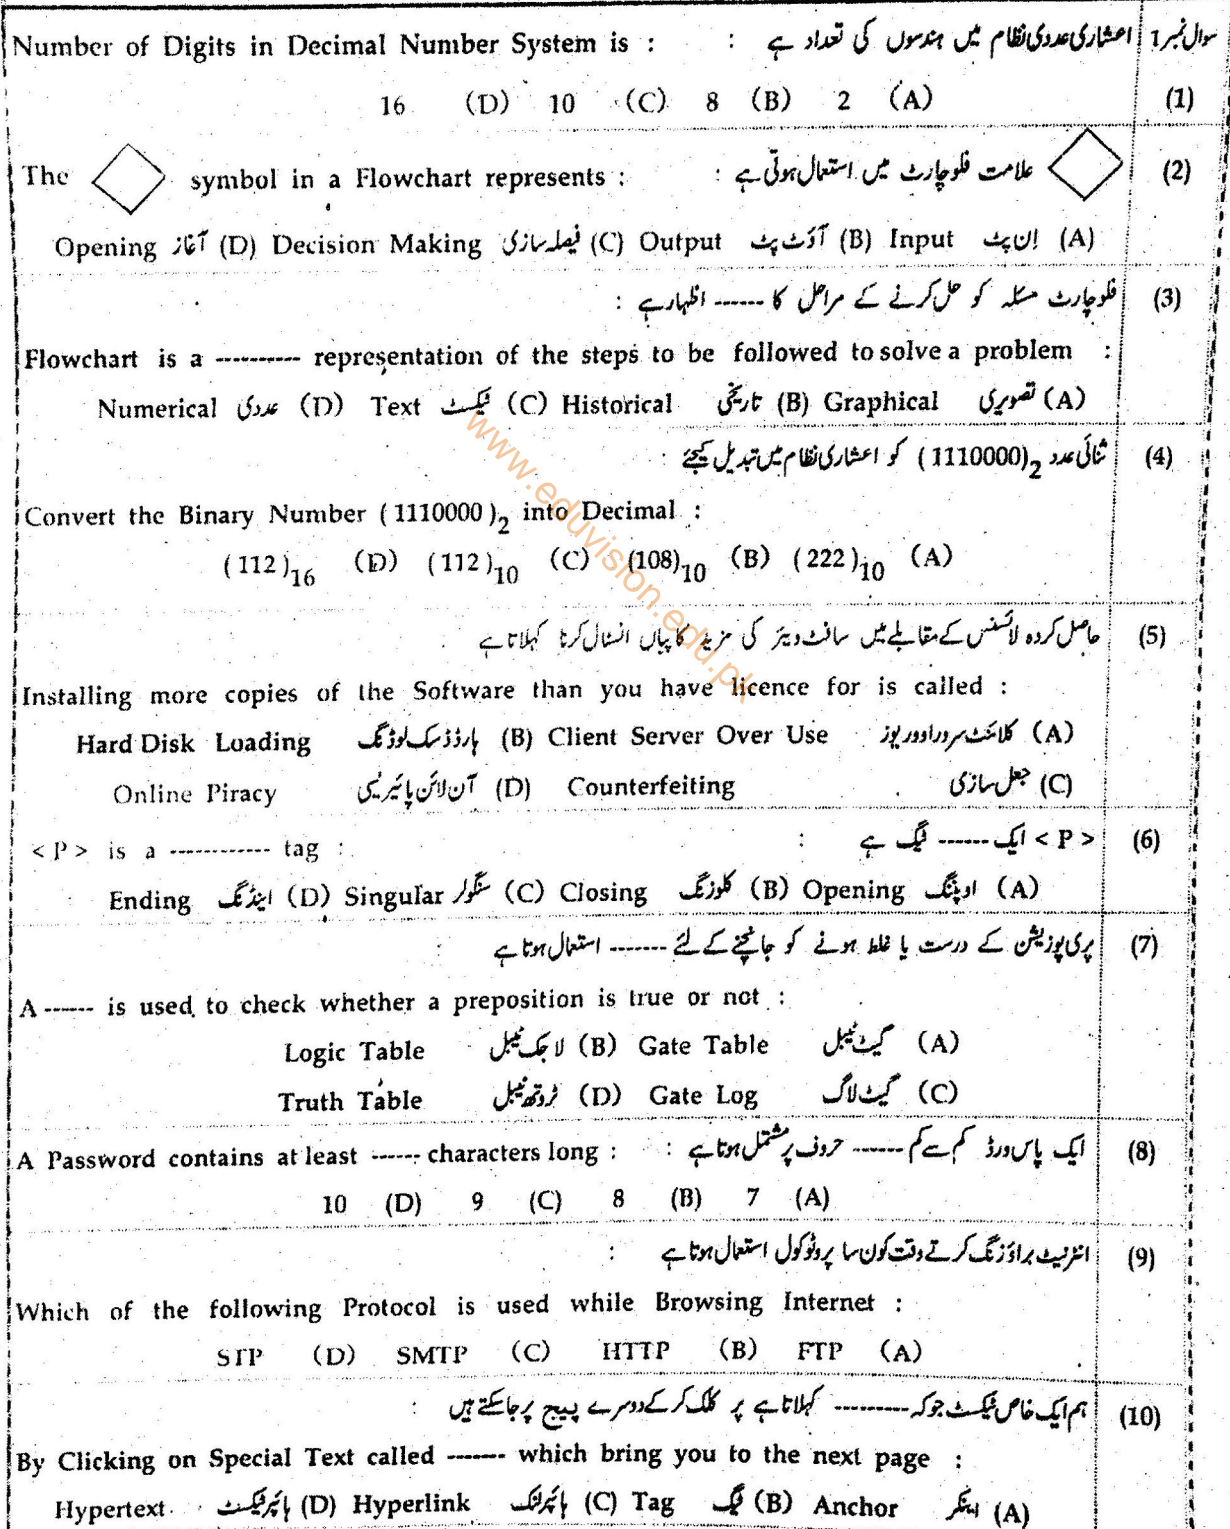 سوال نمبر 1 اعشاری عددی نظام میں ہندسوں کی تعداد ہے : Number of Digits in Decimal Number System is :
(1) (A) 2 (B) 8 (C) 10 (D) 16
(2) علامت فلوچارٹ میں استعمال ہوتی ہے : The symbol in a Flowchart represents :
(A) اِن پٹ Input (B) آؤٹ پٹ Output (C) فیصلہ سازی Decision Making (D) آغاز Opening
(3) فلوچارٹ مسئلہ کو حل کرنے کے مراحل کا ------ اظہار ہے :
Flowchart is a ---------- representation of the steps to be followed to solve a problem :
(A) تصویری Graphical (B) تاریخی Historical (C) ٹیکسٹ Text (D) عددی Numerical
(4) ثنائی عدد (1110000)₂ کو اعشاری نظام میں تبدیل کیجئے :
Convert the Binary Number (1110000)₂ into Decimal :
(A) (222)₁₀ (B) (108)₁₀ (C) (112)₁₀ (D) (112)₁₆
(5) حاصل کردہ لائسنس کے مقابلے میں سافٹ ویئر کی مزید کاپیاں انسٹال کرنا کہلاتا ہے :
Installing more copies of the Software than you have licence for is called :
(A) کلائنٹ سرور اوور یوز Client Server Over Use (B) ہارڈ ڈسک لوڈنگ Hard Disk Loading
(C) جعل سازی Counterfeiting (D) آن لائن پائیریسی Online Piracy
(6) < P > ایک ------ ٹیگ ہے : < P > is a ------------ tag :
(A) اوپننگ Opening (B) کلوزنگ Closing (C) سنگولر Singular (D) اینڈنگ Ending
(7) پری پوزیشن کے درست یا غلط ہونے کو جانچنے کے لئے ------- استعمال ہوتا ہے :
A ------ is used to check whether a preposition is true or not :
(A) گیٹ ٹیبل Gate Table (B) لاجک ٹیبل Logic Table
(C) گیٹ لاگ Gate Log (D) ٹروتھ ٹیبل Truth Table
(8) ایک پاس ورڈ کم سے کم ------ حروف پر مشتمل ہوتا ہے : A Password contains at least ------ characters long :
(A) 7 (B) 8 (C) 9 (D) 10
(9) انٹرنیٹ براؤزنگ کرتے وقت کون سا پروٹوکول استعمال ہوتا ہے :
Which of the following Protocol is used while Browsing Internet :
(A) FTP (B) HTTP (C) SMTP (D) STP
(10) ہم ایک خاص ٹیکسٹ جو کہ --------- کہلاتا ہے پر کلک کر کے دوسرے پیج پر جا سکتے ہیں :
By Clicking on Special Text called ------- which bring you to the next page :
(A) اینکر Anchor (B) ٹیگ Tag (C) ہائپر لنک Hyperlink (D) ہائپر ٹیکسٹ Hypertext
www.eduvision.edu.pk